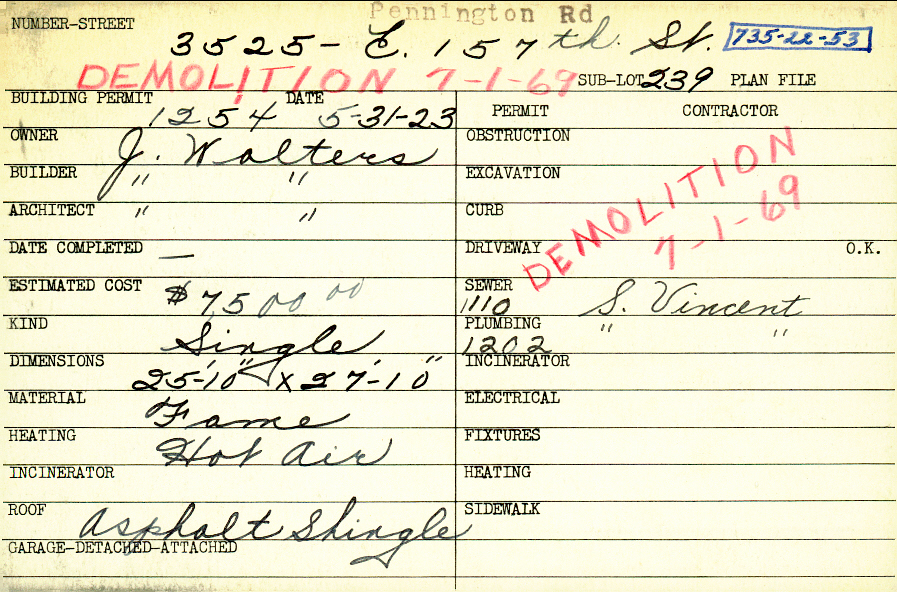 Pennington Rd
NUMBER-STREET 3525- E. 157th. St. 735-22-53
DEMOLITION 7-1-69 SUB-LOT 239 PLAN FILE
BUILDING PERMIT 1254 DATE 5-31-23
PERMIT CONTRACTOR
OWNER J. Walters
OBSTRUCTION
BUILDER " "
EXCAVATION
ARCHITECT " "
CURB
DEMOLITION
7-1-69
DATE COMPLETED —
DRIVEWAY O.K.
ESTIMATED COST $7500 00
SEWER 1110 S. Vincent
KIND Single
PLUMBING 1202 " "
DIMENSIONS 25'-10" X 27'-10"
INCINERATOR
MATERIAL Fame
ELECTRICAL
HEATING Hot Air
FIXTURES
INCINERATOR
HEATING
ROOF Asphalt Shingle
SIDEWALK
GARAGE-DETACHED-ATTACHED